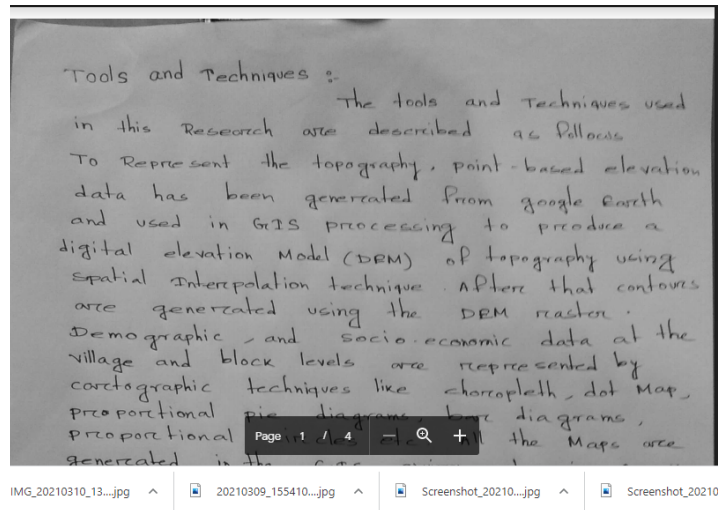 Tools and Techniques :-
The tools and Techniques used
in this Research are described as follows
To Represent the topography, point-based elevation
data has been generated from google Earth
and used in GIS processing to produce a
digital elevation Model (DEM) of topography using
Spatial Interpolation technique. After that contours
are generated using the DEM raster.
Demographic, and socio-economic data at the
village and block levels are represented by
cartographic techniques like choropleth, dot Map,
proportional pie diagrams, bar diagrams,
proportional circles etc. All the Maps are
generated in the GIS
Page 1 / 4 — +
IMG_20210310_13....jpg
20210309_155410....jpg
Screenshot_20210....jpg
Screenshot_20210